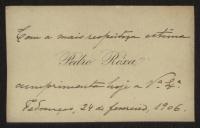 Com a mais respeitosa estima
Pedro Rôxa
cumprimenta hoje a V.ª E.ª
24 de fevereiro, 1906.